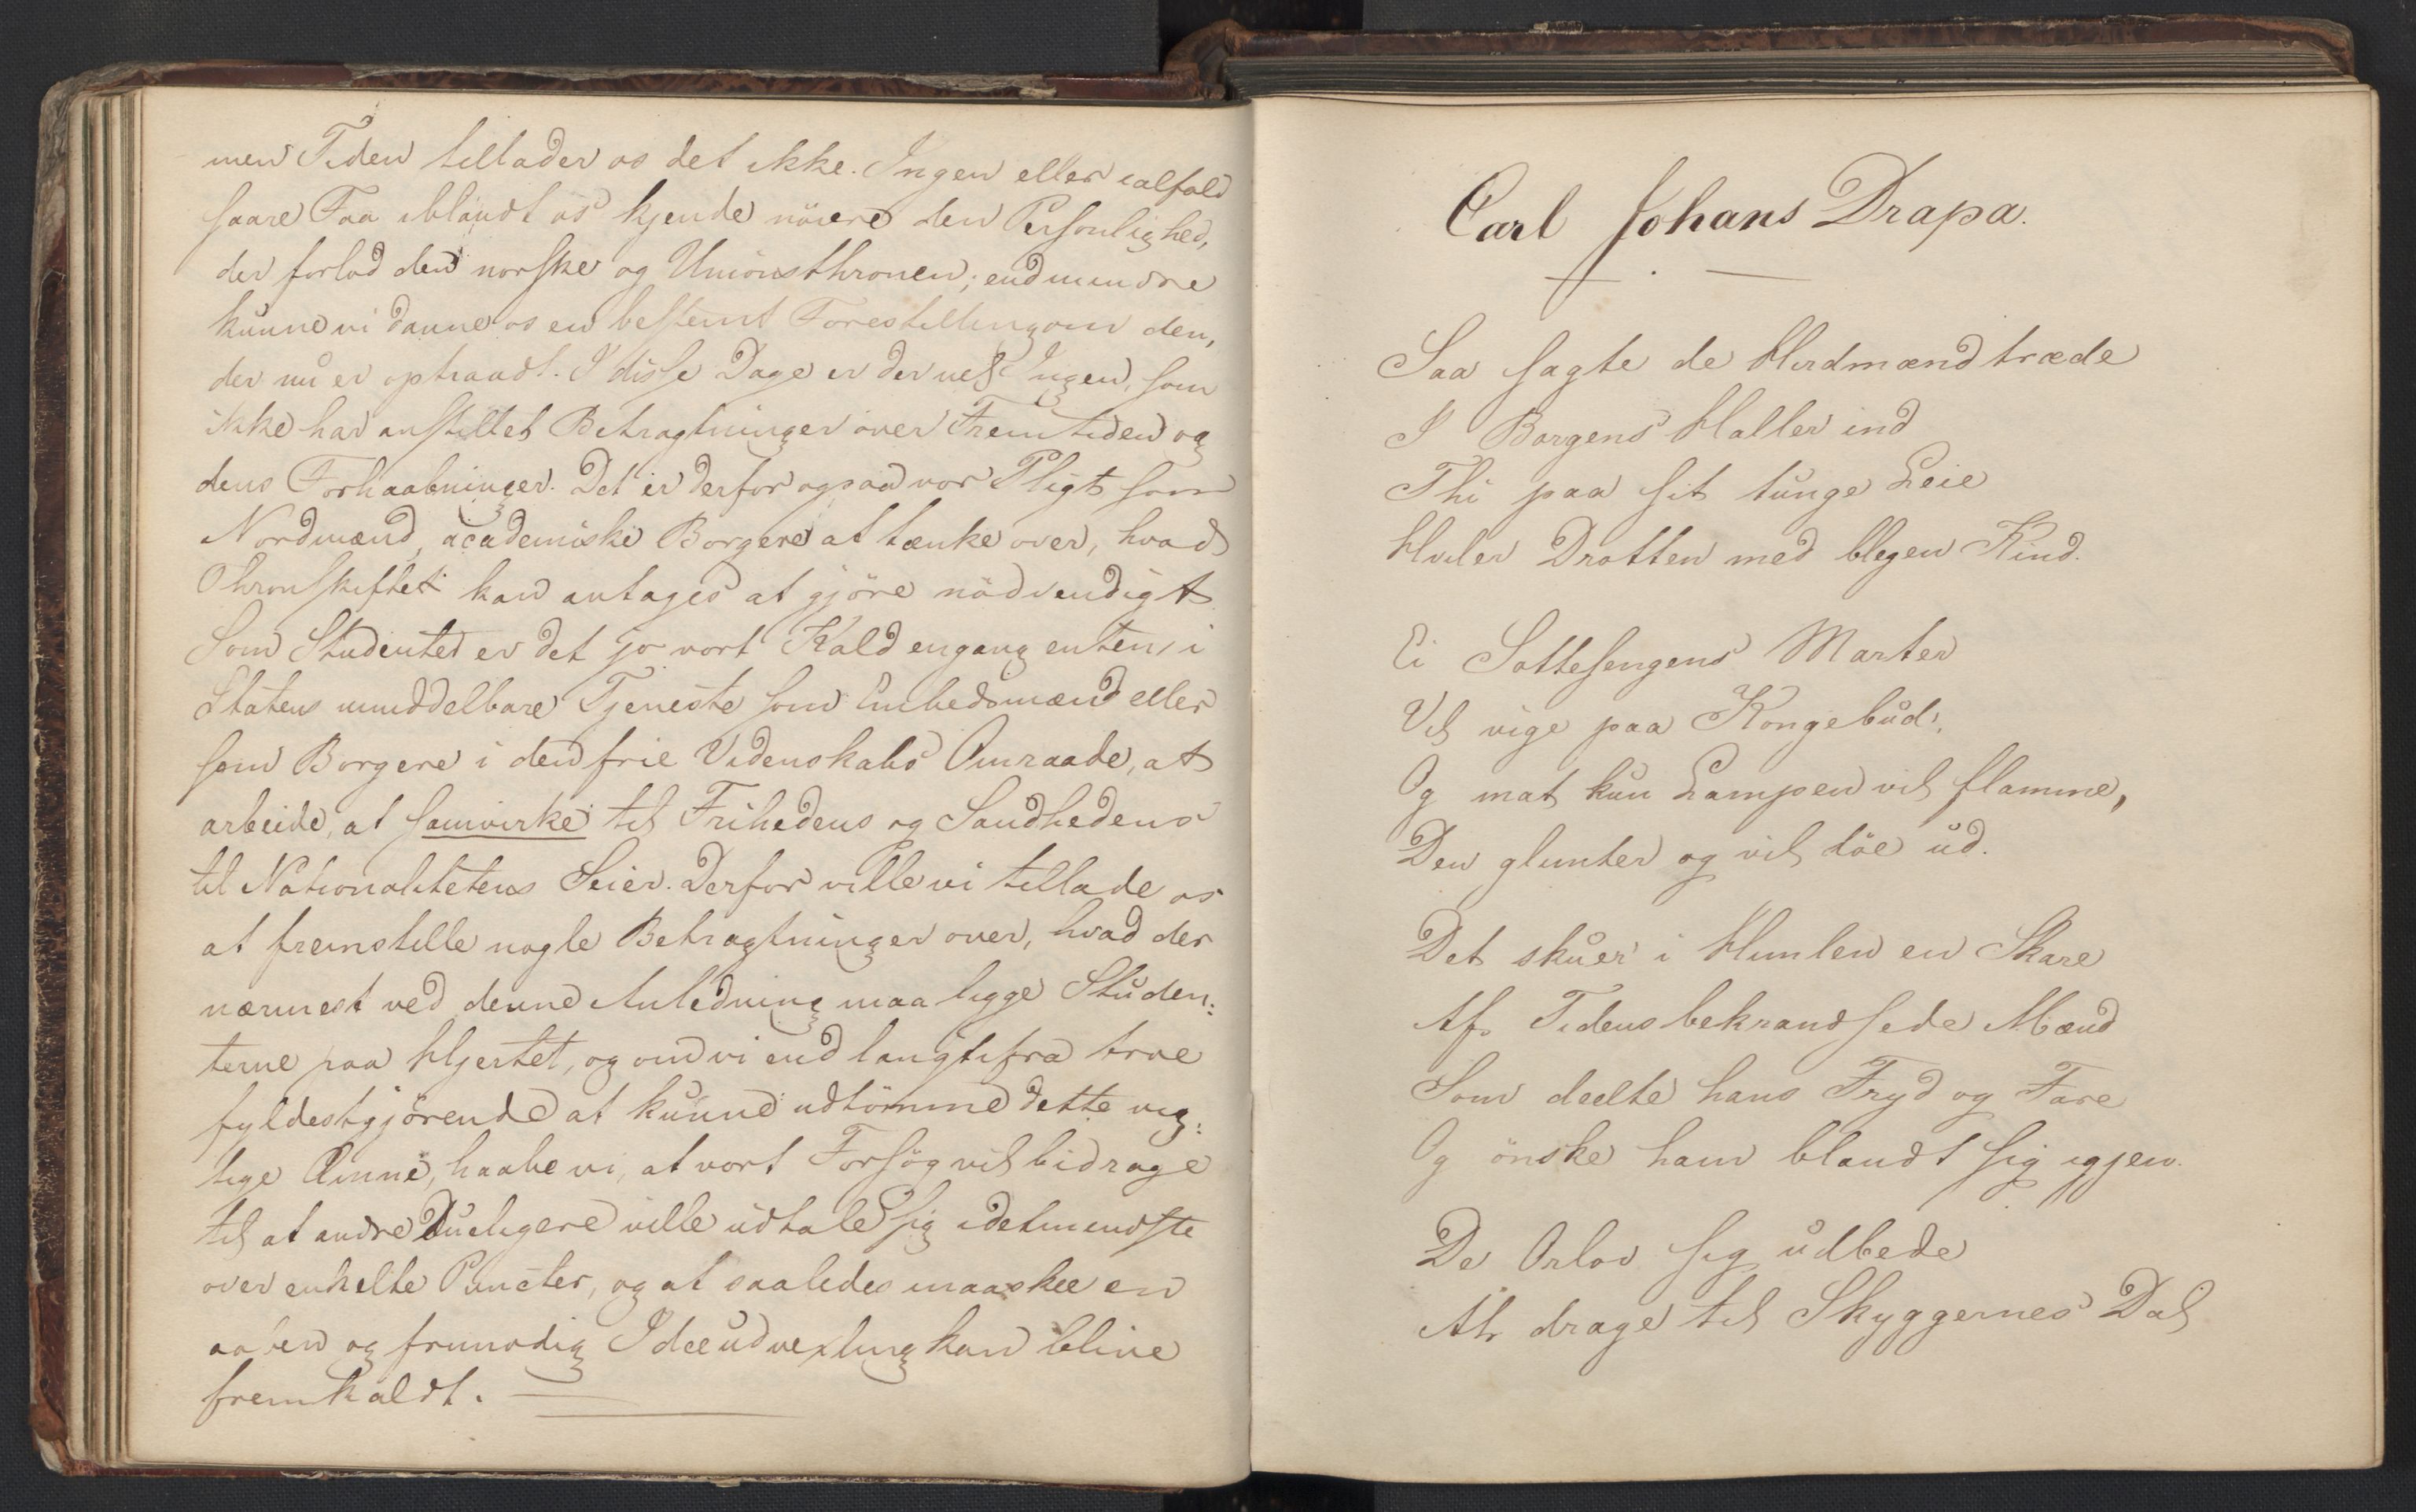 men Tiden tillader os det ikke. Ingen eller ialfald
saare Faa iblandt os kjende nöiere den Personlighed,
der forlod den norske og Unionsthronen; endmindre
kunne vi danne os en bestemt Forestilling om den,
der nu er optraadt. I disse Dage er der vel Ingen, som
ikke har anstillet Betragtninger over Fremtiden og
dens Forhaabninger. Det er derfor ogsaa vor Pligt som
Nordmænd, academiske Borgere at tænke over, hvad
Thronskiftet kan antages at gjöre nödvendigt
Som Studenter er det jo vort Kald engang enten i
Statens umiddelbare Tjeneste som Embedsmænd eller
som Borgere i den frie Videnskabs Omraade, at
arbeide, at samvirke til Frihedens og Sandhedens
til Nationalitetens Seier. Derfor ville vi tillade os
at fremstille nogle Betragtninger over, hvad der
nærmest ved denne Anledning maa ligge Studen:
terne paa Hjertet, og om vi end langtifra troe
fyldestgjörende at kunne udtömme dette vig:
tige Æmne, haabe vi, at vort Forsög vil bidrage
til at andre Dueligere ville udtale sig idetmindste
over enkelte Puncter, og at saaledes maaskee en
aaben og frimodig Ideeudvexling kan blive
fremkaldt.
Carl Johans Drapa.
Saa sagte de Hirdmænd træde
I Borgens Haller ind
Thi paa sit tunge Leie
Hviler Drotten med blegen Kind.
Ei Sottesengens Marter
Vil vige paa Kongebud,
Og mat kun Lampen vil flamme,
Den glimter og vil döe ud.
Det skuer i Himlen en Skare
Af Tidens bekrandsede Mænd
Som deelte hans Fryd og Fare
Og önske ham blandt sig igjen.
De Orlov sig udbede
At drage til Skyggernes Dal